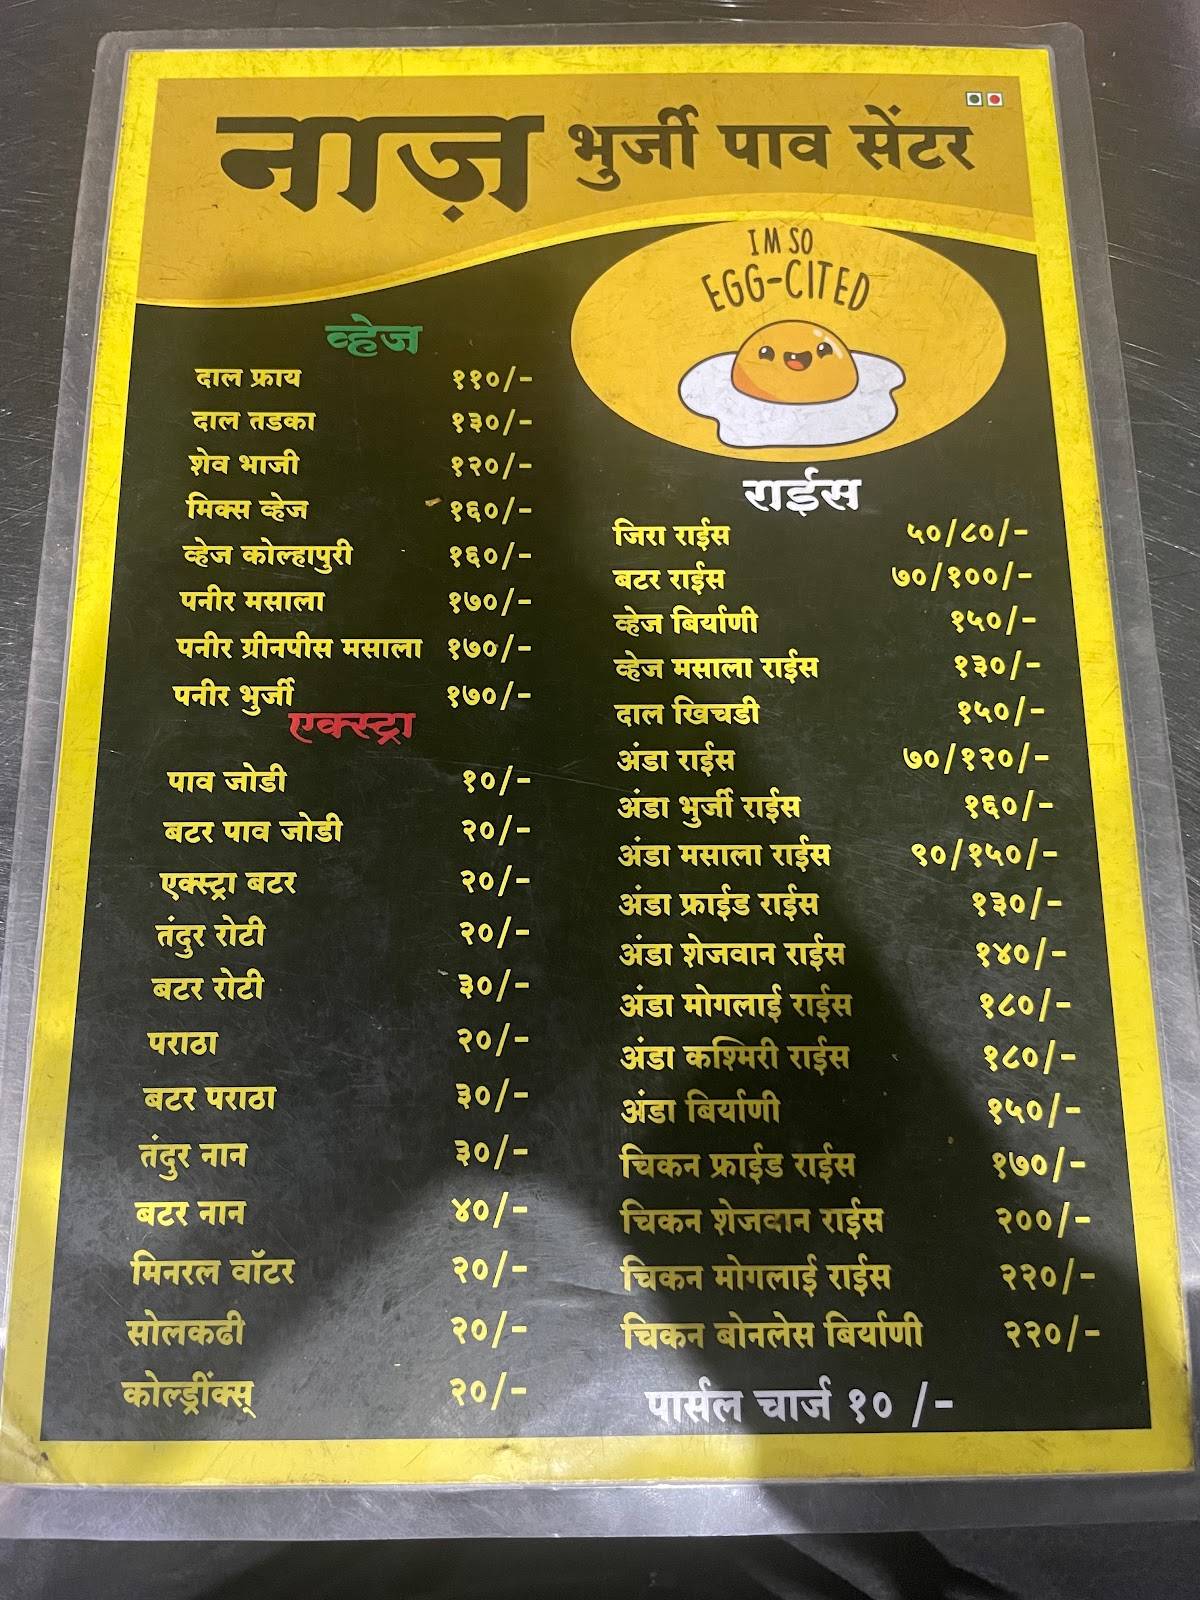 नाज़ भुर्जी पाव सेंटर
I M SO
EGG-CITED
व्हेज
दाल फ्राय ११०/-
दाल तडका १३०/-
शेव भाजी १२०/-
मिक्स व्हेज १६०/-
व्हेज कोल्हापुरी १६०/-
पनीर मसाला १७०/-
पनीर ग्रीनपीस मसाला १७०/-
पनीर भुर्जी १७०/-
एक्स्ट्रा
पाव जोडी १०/-
बटर पाव जोडी २०/-
एक्स्ट्रा बटर २०/-
तंदुर रोटी २०/-
बटर रोटी ३०/-
पराठा २०/-
बटर पराठा ३०/-
तंदुर नान ३०/-
बटर नान ४०/-
मिनरल वॉटर २०/-
सोलकढी २०/-
कोल्ड्रींक्स् २०/-
राईस
जिरा राईस ५०/८०/-
बटर राईस ७०/१००/-
व्हेज बिर्याणी १५०/-
व्हेज मसाला राईस १३०/-
दाल खिचडी १५०/-
अंडा राईस ७०/१२०/-
अंडा भुर्जी राईस १६०/-
अंडा मसाला राईस ९०/१५०/-
अंडा फ्राईड राईस १३०/-
अंडा शेजवान राईस १४०/-
अंडा मोगलाई राईस १८०/-
अंडा कश्मिरी राईस १८०/-
अंडा बिर्याणी १५०/-
चिकन फ्राईड राईस १७०/-
चिकन शेजवान राईस २००/-
चिकन मोगलाई राईस २२०/-
चिकन बोनलेस बिर्याणी २२०/-
पार्सल चार्ज १० /-